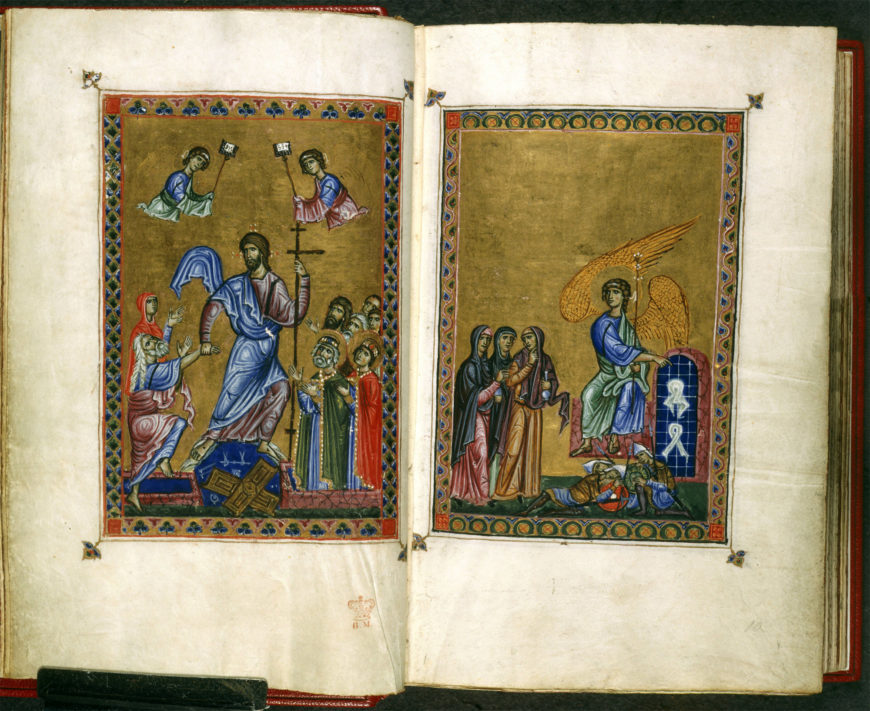 B.M.
10